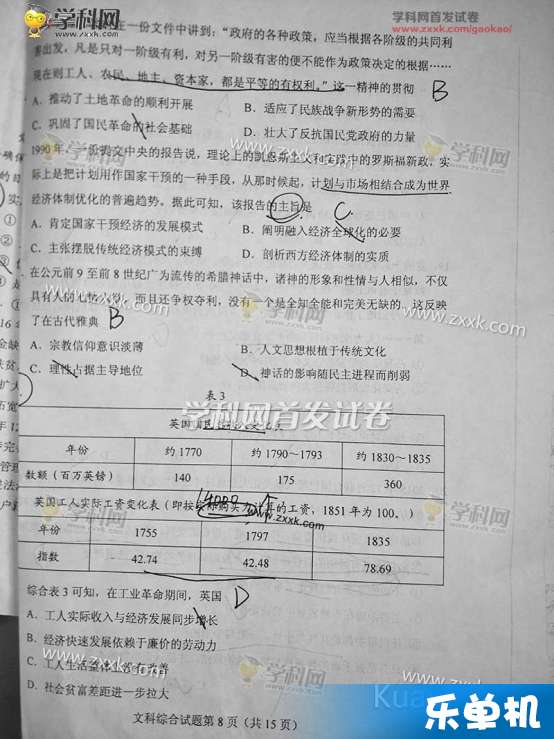 学科网
学科网首发试卷
www.zxxk.com/gaokao/
在一份文件中讲到：“政府的各种政策，应当根据各阶级的共同利
害出发，凡是只对一阶级有利，对另一阶级有害的便不能作为政策决定的根据……
现在则工人、农民、地主、资本家，都是平等的有权利。”这一精神的贯彻 B
A．推动了土地革命的顺利开展 B．适应了民族战争新形势的需要
C．巩固了国民革命的社会基础 D．壮大了反抗国民党政府的力量
1990年，一份提交中央的报告说，理论上的凯恩斯主义和实践中的罗斯福新政，实
际上是把计划用作国家干预的一种手段，从那时候起，计划与市场相结合成为世界
经济体制优化的普遍趋势。据此可知，该报告的主旨是 C
A．肯定国家干预经济的发展模式 B．阐明融入经济全球化的必要
C．主张摆脱传统经济模式的束缚 D．剖析西方经济体制的实质
在公元前9至前8世纪广为流传的希腊神话中，诸神的形象和性情与人相似，不仅
具有人的，而且还争权夺利，没有一个是全知全能和完美无缺的。这反映
了在古代雅典 B
A．宗教信仰意识淡薄 B．人文思想根植于传统文化
C．理性占据主导地位 D．神话的影响随民主进程而削弱
表3
学科网首发试卷
英国
年份 约1770 约1790～1793 约1830～1835
数额（百万英镑） 140 175 360
英国工人实际工资变化表（即按实际购买力计算的工资，1851年为100。）
年份 1755 1797 1835
指数 42.74 42.48 78.69
综合表3可知，在工业革命期间，英国 D
A．工人实际收入与经济发展同步增长
B．经济快速发展依赖于廉价的劳动力
C．工人生活整体上没有改善
D．社会贫富差距进一步拉大
文科综合试题第8页（共15页）
乐单机